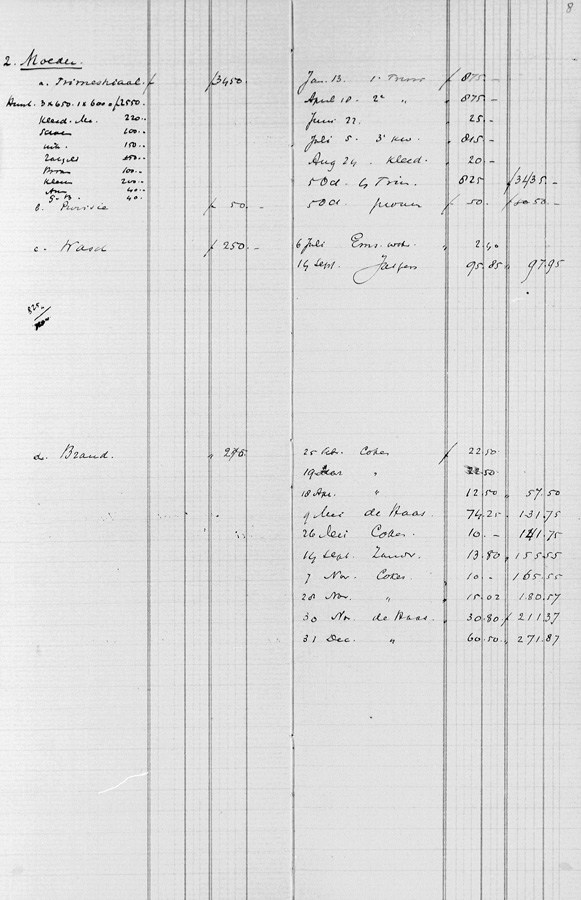 8
2. Moeder.
a. Trimestriaal. f f3450. Jan. 13. 1e Trim f 875.-
Huish. 3 x 650. 1 x 600 = f2550. April 10. 2e " " 875.-
Kleed. Mo. 220.- Juni 22. " 25.-
100.- Juli 5. 3e kw. " 815.-
150.- Aug 24. Kleed. " 20.-
Zakgeld 5 Oct. 4e Trim. 825 f3435.-
100.-
Kleen 200.-
40.-
S. N. 40.
b. f 50.- 5 Oct. f 50. f 50.-
c. Wasch f 250.- 6 Juli " 2.40
14 Sept. Jaspers 95.85 " 97.95
825.-
d. Brand. " 275. 25 Feb. Cokes f 22.50
19 Maar " 22.50
18 Apr. " 12.50 " 57.50
9 Mei de Haas. 74.25. 131.75
26 Mei Cokes. 10.- 141.75
14 Sept. 13.80 " 155.55
7 Nov. Cokes 10.- 165.55
28 Nov. " 15.02 180.57
30 Nov. de Haas. 30.80 f 211.37
31 Dec. " 60.50 " 271.87